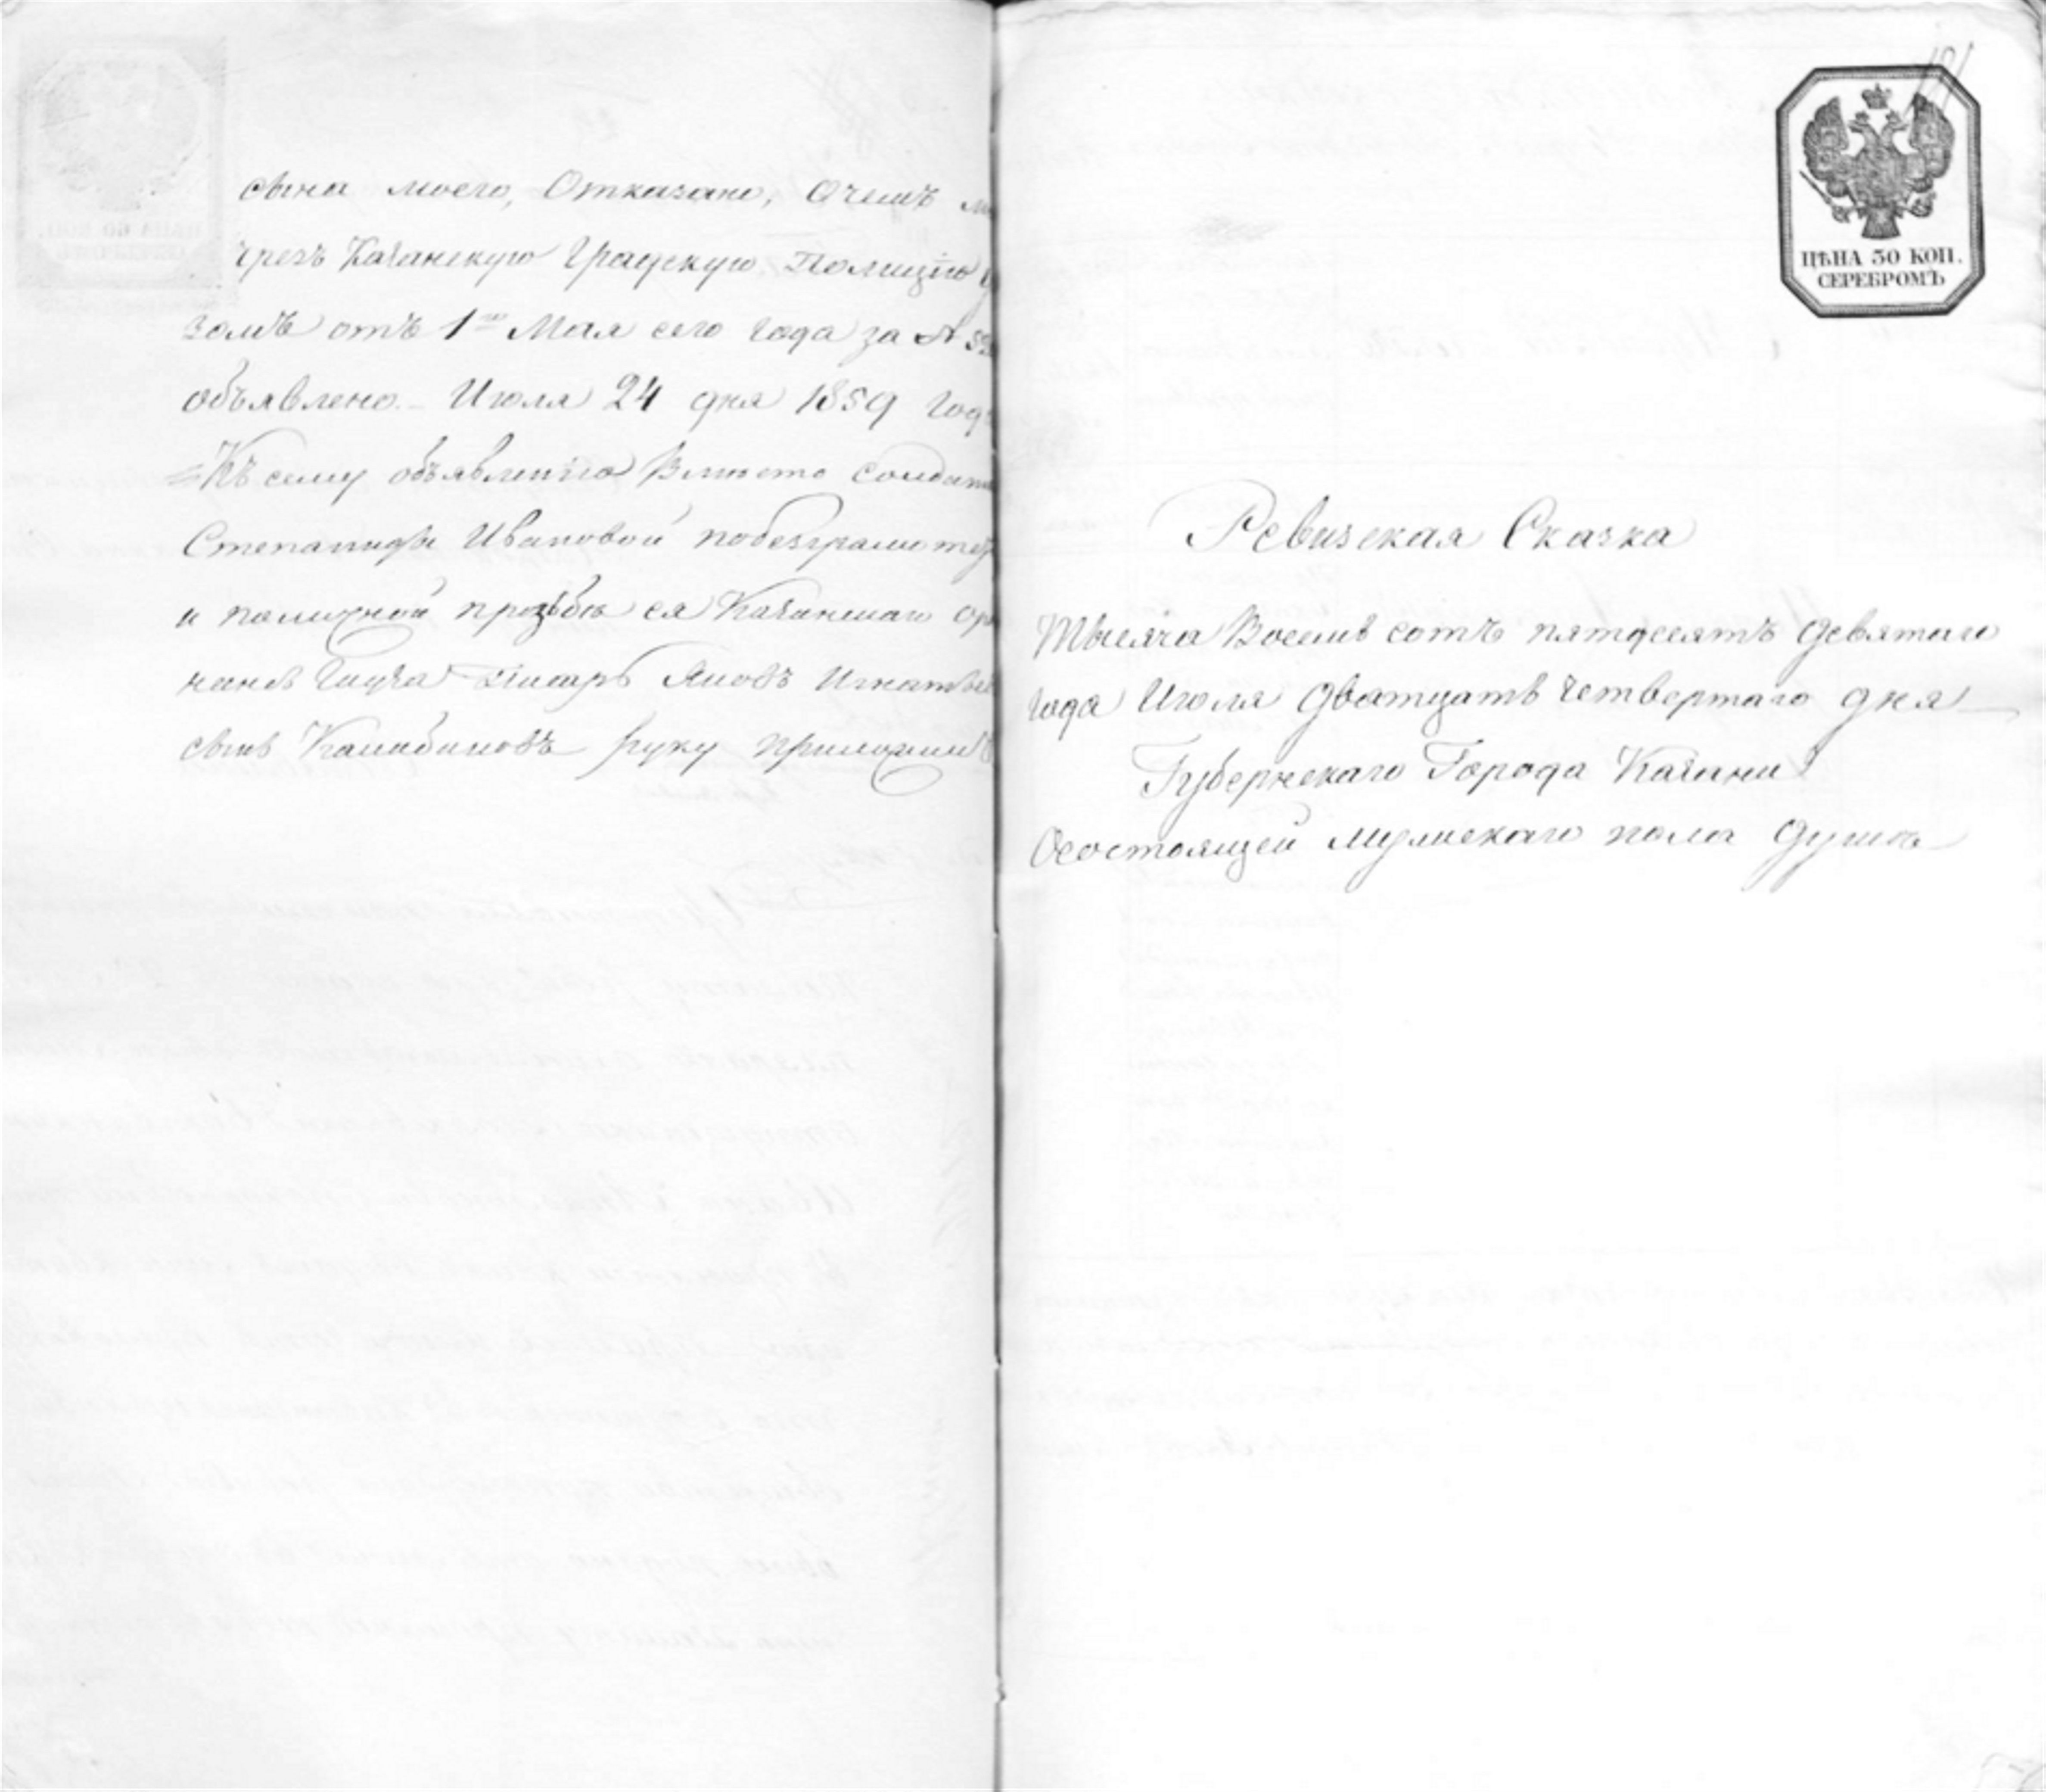 сына моего, Отказано, Очемъ
чрезъ Казанскую Градскую Полицію
зомъ отъ 1го Мая сего года за №
объявлено. – Июля 24 дня 1859 года
Къ сему объявленію вместо солдатк
Степаниды Ивановой побезграмотст
и поличной прозьбѣ ея Казанскаго
сынъ руку приложилъ
181
ЦѢНА 30 КОП.
СЕРЕБРОМЪ
Ревизская Сказка
Тысяча Восемь сотъ пятдесятъ девятаго
года Июля дватцать четвертаго дня
Губернскаго Города Казани
Осостоящей мужескаго пола душѣ